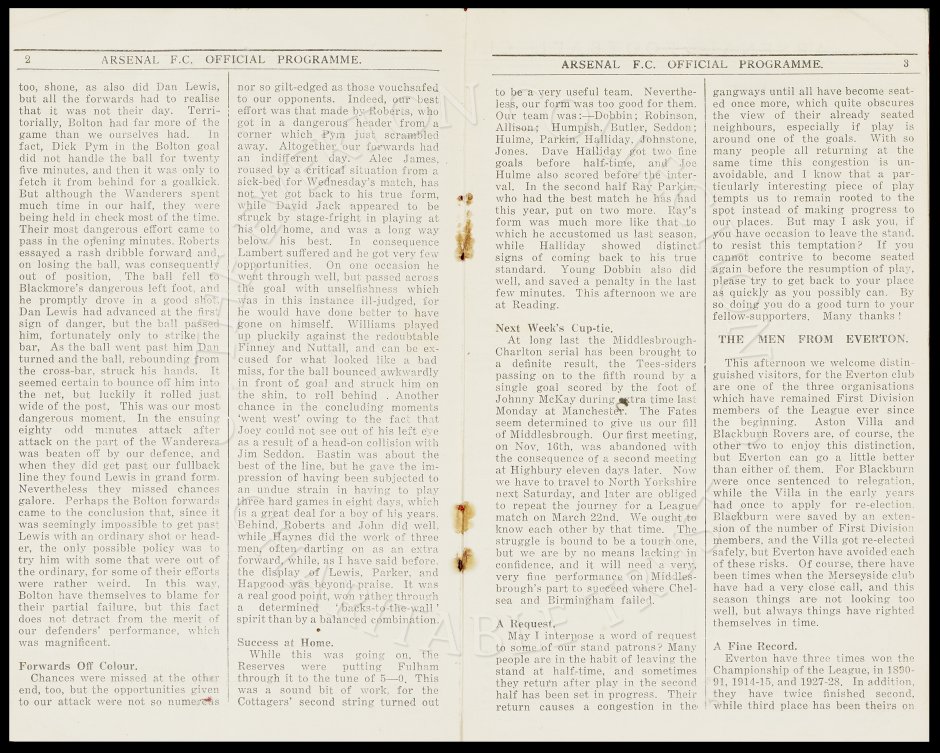 2 ARSENAL F.C. OFFICIAL PROGRAMME.
too, shone, as also did Dan Lewis,
but all the forwards had to realise
that it was not their day. Terri-
torially, Bolton had far more of the
game than we ourselves had. In
fact, Dick Pym in the Bolton goal
did not handle the ball for twenty
five minutes, and then it was only to
fetch it from behind for a goalkick.
But although the Wanderers spent
much time in our half, they were
being held in check most of the time.
Their most dangerous effort came to
pass in the opening minutes. Roberts
essayed a rash dribble forward and,
on losing the ball, was consequently
out of position. The ball fell to
Blackmore's dangerous left foot, and
he promptly drove in a good shot.
Dan Lewis had advanced at the first
sign of danger, but the ball passed
him, fortunately only to strike the
bar. As the ball went past him Dan
turned and the ball, rebounding from
the cross-bar, struck his hands. It
seemed certain to bounce off him into
the net, but luckily it rolled just
wide of the post. This was our most
dangerous moment. In the ensuing
eighty odd minutes attack after
attack on the part of the Wanderers
was beaten off by our defence, and
when they did get past our fullback
line they found Lewis in grand form.
Nevertheless they missed chances
galore. Perhaps the Bolton forwards
came to the conclusion that, since it
was seemingly impossible to get past
Lewis with an ordinary shot or head-
er, the only possible policy was to
try him with some that were out of
the ordinary, for some of their efforts
were rather weird. In this way,
Bolton have themselves to blame for
their partial failure, but this fact
does not detract from the merit of
our defenders' performance, which
was magnificent.
Forwards Off Colour.
Chances were missed at the other
end, too, but the opportunities given
to our attack were not so numerous
nor so gilt-edged as those vouchsafed
to our opponents. Indeed, our best
effort was that made by Roberts, who
got in a dangerous header from a
corner which Pym just scrambled
away. Altogether our forwards had
an indifferent day. Alec James,
roused by a critical situation from a
sick-bed for Wednesday's match, has
not yet got back to his true form,
while David Jack appeared to be
struck by stage-fright in playing at
his old home, and was a long way
below his best. In consequence
Lambert suffered and he got very few
opportunities. On one occasion he
went through well, but passed across
the goal with unselfishness which
was in this instance ill-judged, for
he would have done better to have
gone on himself. Williams played
up pluckily against the redoubtable
Finney and Nuttall, and can be ex-
cused for what looked like a bad
miss, for the ball bounced awkwardly
in front of goal and struck him on
the shin, to roll behind . Another
chance in the concluding moments
'went west' owing to the fact that
Joey could not see out of his left eye
as a result of a head-on collision with
Jim Seddon. Bastin was about the
best of the line, but he gave the im-
pression of having been subjected to
an undue strain in having to play
three hard games in eight days, which
is a great deal for a boy of his years.
Behind, Roberts and John did well,
while Haynes did the work of three
men, often darting on as an extra
forward, while, as I have said before,
the display of Lewis, Parker, and
Hapgood was beyond praise. It was
a real good point, won rather through
a determined 'backs-to-the-wall'
spirit than by a balanced combination.
Success at Home.
While this was going on, the
Reserves were putting Fulham
through it to the tune of 5—0. This
was a sound bit of work, for the
Cottagers' second string turned out
ARSENAL F.C. OFFICIAL PROGRAMME. 3
to be a very useful team. Neverthe-
less, our form was too good for them.
Our team was:—Dobbin; Robinson,
Allison; Humpish, Butler, Seddon;
Hulme, Parkin, Halliday, Johnstone,
Jones. Dave Halliday got two fine
goals before half-time, and Joe
Hulme also scored before the inter-
val. In the second half Ray Parkin,
who had the best match he has had
this year, put on two more. Ray's
form was much more like that to
which he accustomed us last season,
while Halliday showed distinct
signs of coming back to his true
standard. Young Dobbin also did
well, and saved a penalty in the last
few minutes. This afternoon we are
at Reading.
Next Week's Cup-tie.
At long last the Middlesbrough-
Charlton serial has been brought to
a definite result, the Tees-siders
passing on to the fifth round by a
single goal scored by the foot of
Johnny McKay during extra time last
Monday at Manchester. The Fates
seem determined to give us our fill
of Middlesbrough. Our first meeting,
on Nov. 16th, was abandoned with
the consequence of a second meeting
at Highbury eleven days later. Now
we have to travel to North Yorkshire
next Saturday, and later are obliged
to repeat the journey for a League
match on March 22nd. We ought to
know each other by that time. The
struggle is bound to be a tough one,
but we are by no means lacking in
confidence, and it will need a very,
very fine performance on Middles-
brough's part to succeed where Chel-
sea and Birmingham failed.
A Request.
May I interpose a word of request
to some of our stand patrons? Many
people are in the habit of leaving the
stand at half-time, and sometimes
they return after play in the second
half has been set in progress. Their
return causes a congestion in the
gangways until all have become seat-
ed once more, which quite obscures
the view of their already seated
neighbours, especially if play is
around one of the goals. With so
many people all returning at the
same time this congestion is un-
avoidable, and I know that a par-
ticularly interesting piece of play
tempts us to remain rooted to the
spot instead of making progress to
our places. But may I ask you, if
you have occasion to leave the stand,
to resist this temptation? If you
cannot contrive to become seated
again before the resumption of play,
please try to get back to your place
as quickly as you possibly can. By
so doing you do a good turn to your
fellow-supporters. Many thanks!
THE MEN FROM EVERTON.
This afternoon we welcome distin-
guished visitors, for the Everton club
are one of the three organisations
which have remained First Division
members of the League ever since
the beginning. Aston Villa and
Blackburn Rovers are, of course, the
other two to enjoy this distinction,
but Everton can go a little better
than either of them. For Blackburn
were once sentenced to relegation,
while the Villa in the early years
had once to apply for re-election.
Blackburn were saved by an exten-
sion of the number of First Division
members, and the Villa got re-elected
safely, but Everton have avoided each
of these risks. Of course, there have
been times when the Merseyside club
have had a very close call, and this
season things are not looking too
well, but always things have righted
themselves in time.
A Fine Record.
Everton have three times won the
Championship of the League, in 1890-
91, 1914-15, and 1927-28. In addition,
they have twice finished second,
while third place has been theirs on